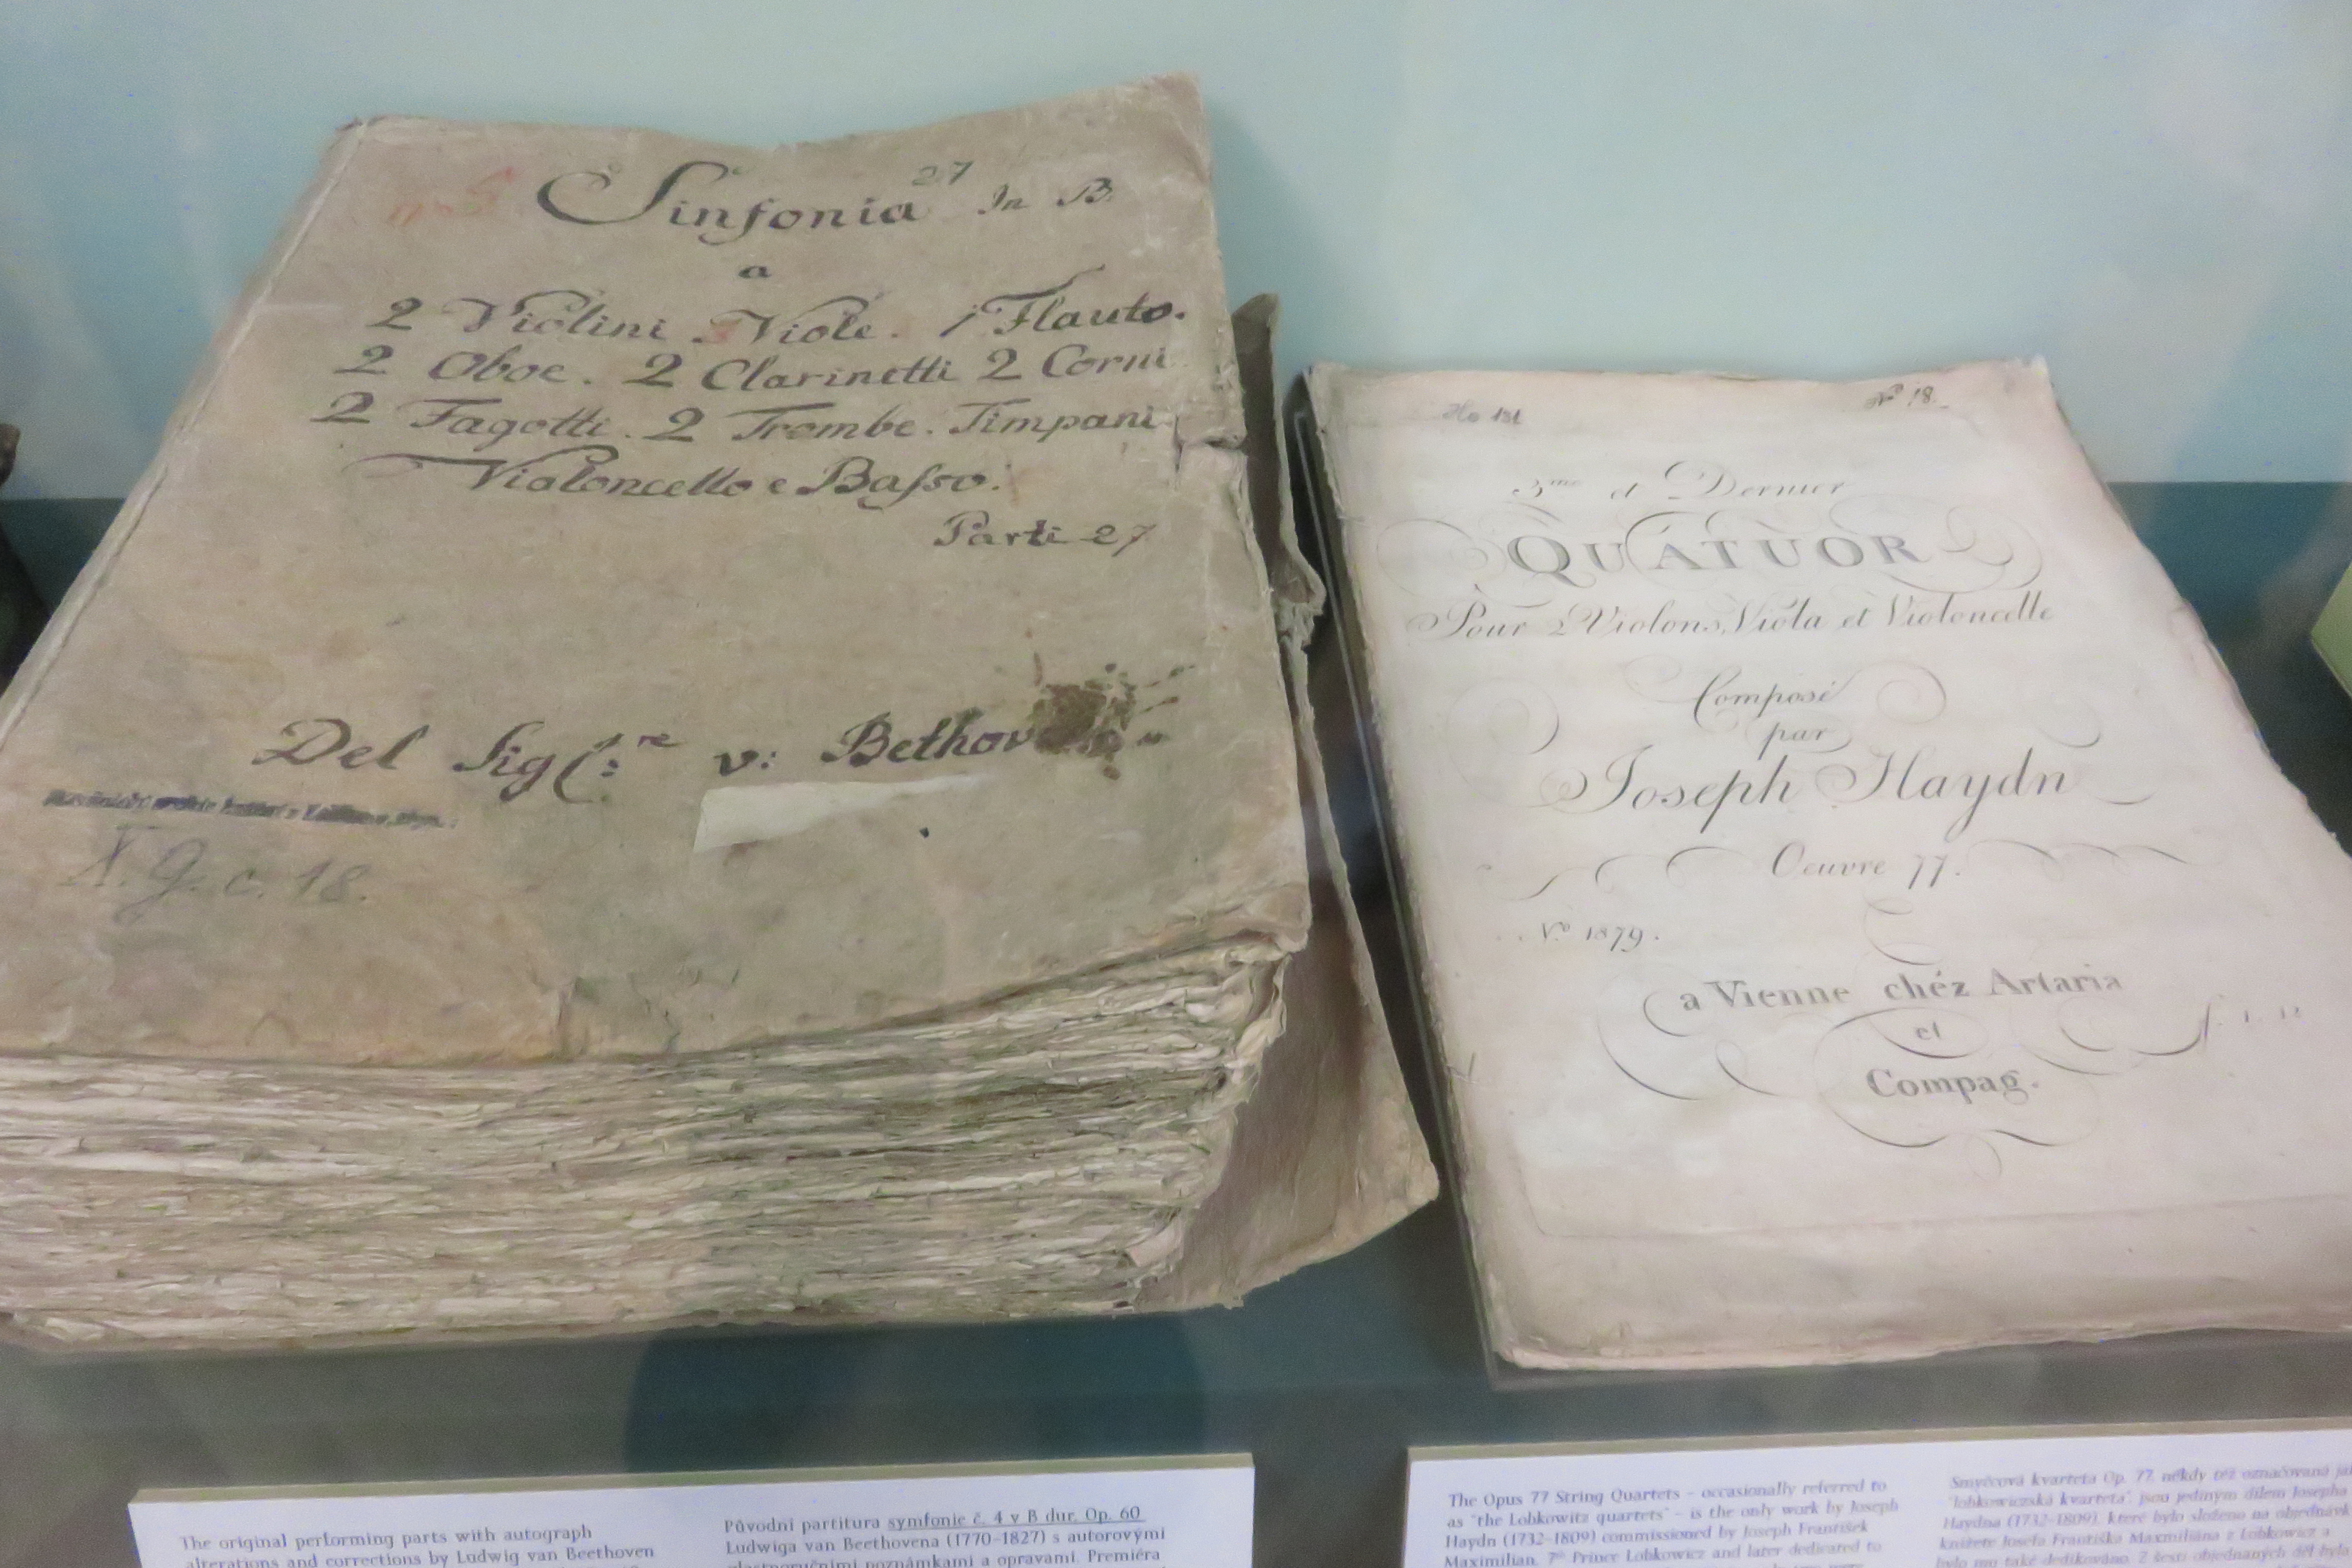 27
Sinfonia In B.
a
2 Violini Viole. 1 Flauto.
2 Oboe. 2 Clarinetti 2 Corni
2 Fagotti. 2 Trombe. Timpani
Violoncello e Baſso.
Parti 27
Del Sig:re v: Bethov
X. G. c. 18.
No 18.
3me et Dernier
QUATUOR
Pour 2 Violons, Viola et Violoncelle
Composé
par
Joseph Haydn
Oeuvre 77.
No 1879.
a Vienne chéz Artaria
et
Compag.
The original performing parts with autograph
alterations and corrections by Ludwig van Beethoven
Původní partitura symfonie č. 4 v B dur, Op. 60
Ludwiga van Beethovena (1770-1827) s autorovými
vlastnoručními poznámkami a opravami. Premiéra
The Opus 77 String Quartets – occasionally referred to
as "the Lobkowitz quartets" – is the only work by Joseph
Haydn (1732-1809) commissioned by Joseph František
Maximilian, 7th Prince Lobkowicz and later dedicated to
Smyčcová kvarteta Op. 77, někdy též označovaná
"lobkowiczská kvarteta", jsou jediným dílem Josepha
Haydna (1732-1809), které bylo složeno na objednávk
knížete Josefa Františka Maxmiliána z Lobkowicz a
bylo mu také dedikováno. Z šesti objednaných děl